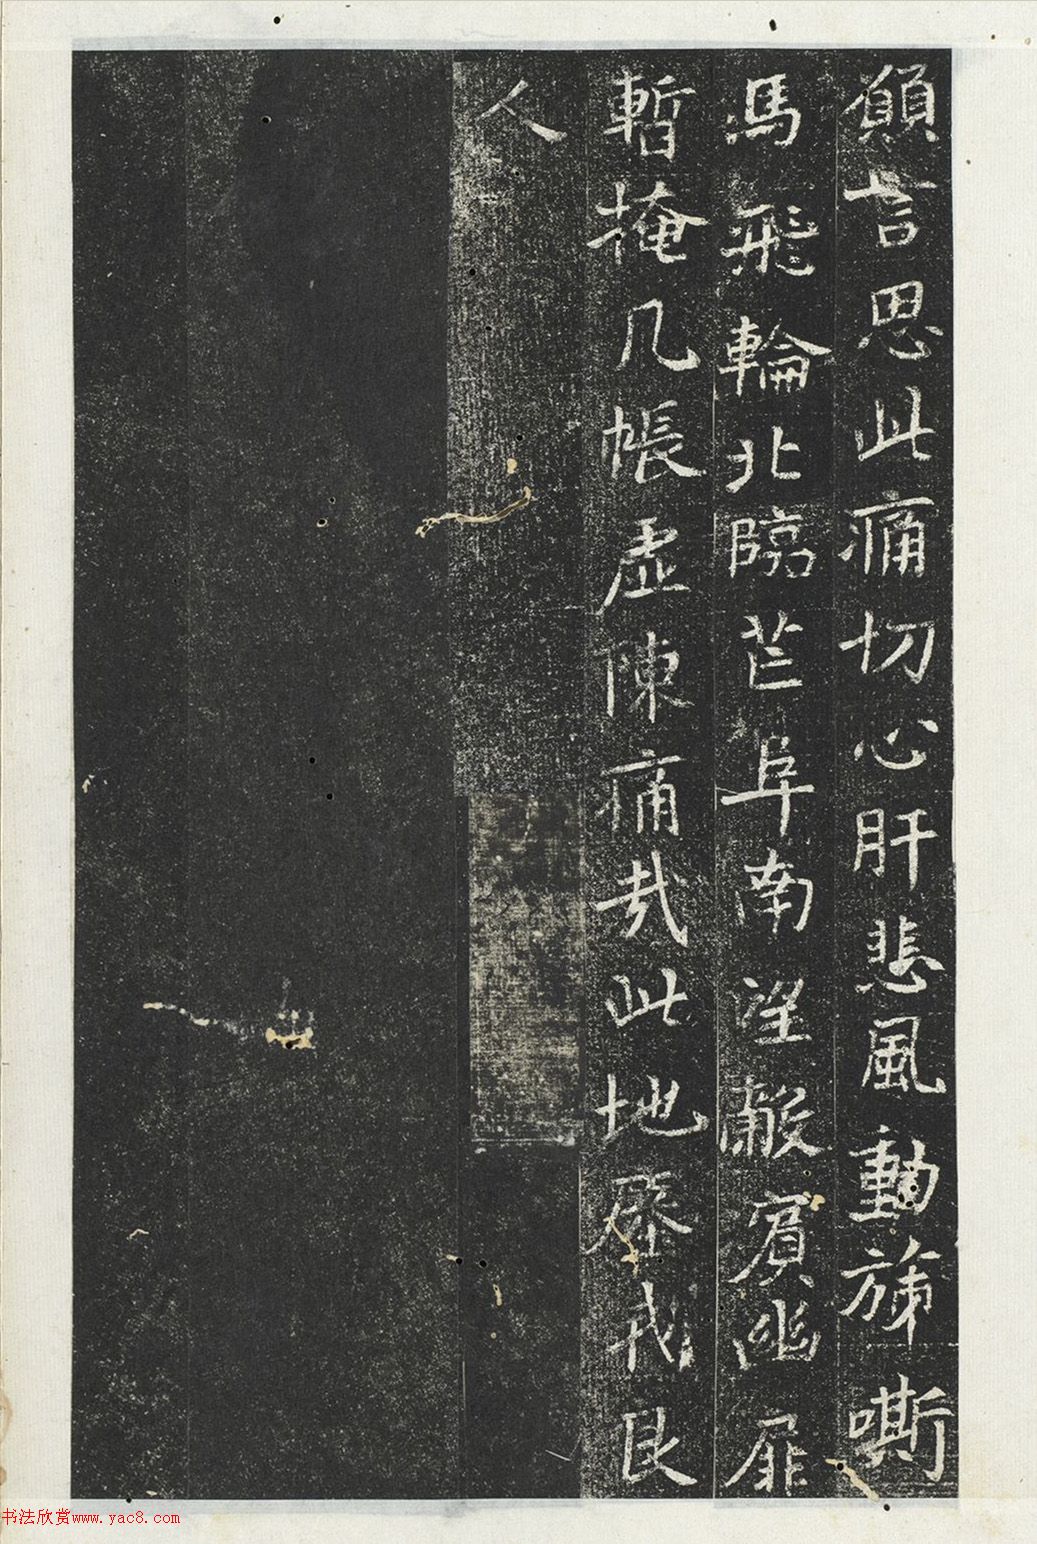 願言思此痛切心肝悲風動旆嘶
馬飛輪北臨芒阜南望嚴賓幽扉
暫掩几帳虛陳痛哉此地瘞我良
人
书法欣赏www.yac8.com